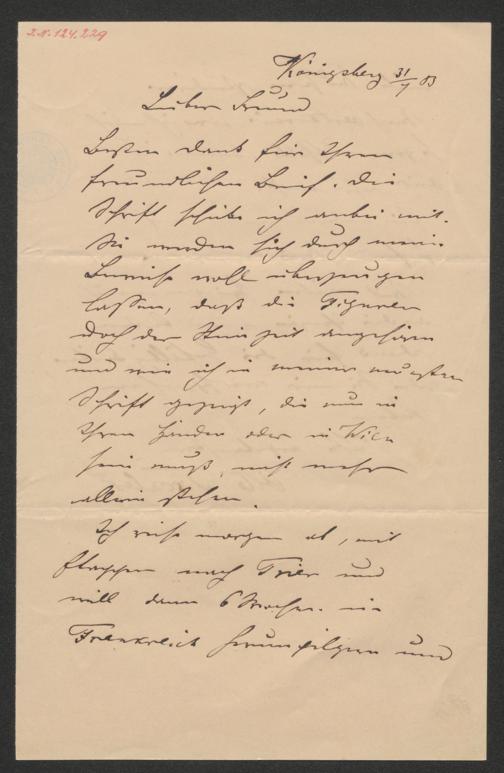 I.N. 124.229
Königsberg 31/7 83
Lieber Freund
Besten Dank für Ihren
freundlichen Brief. Die
Schrift schicke ich anbei mit.
Sie werden sich durch meine
Beweise wohl überzeugen
lassen, daß die Figuren
doch der Steinzeit angehören
und wie ich in meiner neuesten
Schrift gezeigt, die nun in
Ihren Händen oder in Wien
sein muß, nicht mehr
allein stehen.
Ich reise morgen ab, mit
nach Trier und
will dann 6 Wochen in
Frankreich herumpilgern und